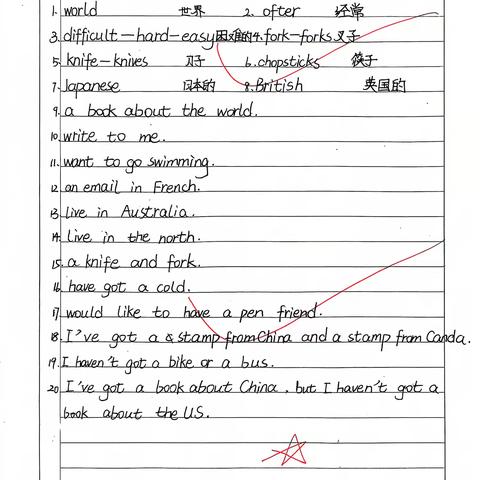 1. world 世界 2. ofter 经常
3. difficult—hard—easy困难的4. fork—forks 叉子
5. knife—knives 刀子 6. chopsticks 筷子
7. Japanese 日本的 8. British 英国的
9. a book about the world.
10. write to me.
11. want to go swimming.
12. an email in French.
13. live in Australia.
14. live in the north.
15. a knife and fork.
16. have got a cold.
17. would like to have a pen friend.
18. I've got a stamp from China and a stamp from Canda.
19. I haven't got a bike or a bus.
20. I've got a book about China, but I haven't got a
book about the US.